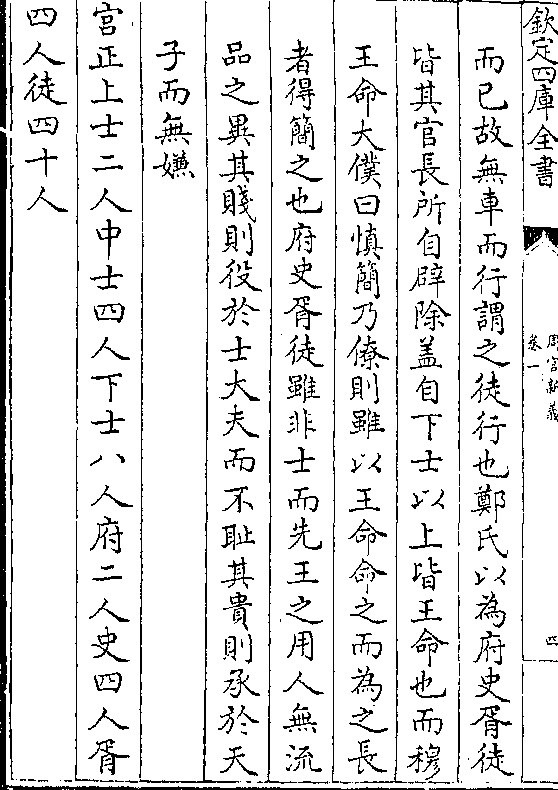 欽定四庫全書
周官新義
卷一
四
而已故無車而行謂之徒行也鄭氏以為府史胥徒
皆其官長所自辟除盖自下士以上皆王命也而穆
王命大僕曰慎簡乃僚則雖以王命命之而為之長
者得簡之也府史胥徒雖非士而先王之用人無流
品之異其賤則役於士大夫而不耻其貴則承於天
子而無嫌
宮正上士二人中士四人下士八人府二人史四人胥
四人徒四十人